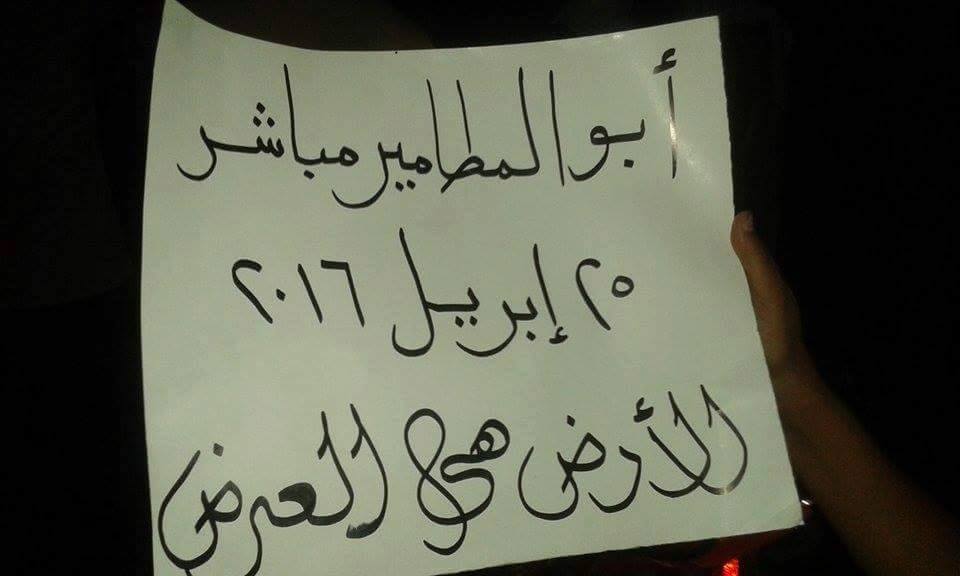 أبو المطامير مباشر
٢٥ إبريل ٢٠١٦
الأرض هي العرض